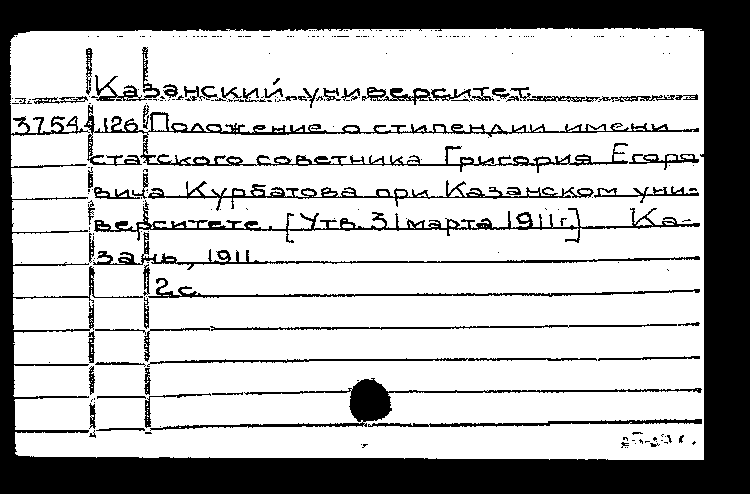 Казанский университет.
3754.4.126. Положение о стипендии имени
статского советника Григория Егоро-
вича Курбатова при Казанском уни-
верситете. [Утв. 31 марта 1911 г.] Ка-
зань, 1911.
2 с.